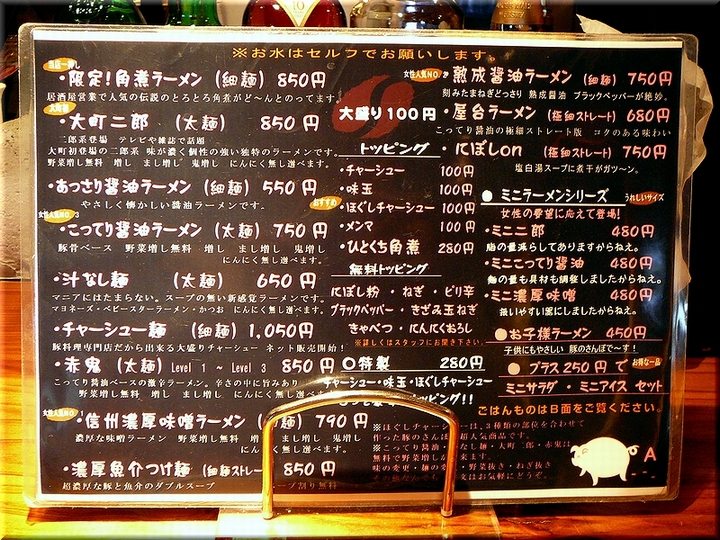 ※お水はセルフでお願いします。
当店一押し
・限定!角煮ラーメン (細麺) 850円
居酒屋営業で人気の伝説のとろとろ角煮がど〜んとのってます。
大町初
・大町二郎 (太麺) 850円
二郎系登場 テレビや雑誌で話題
大町初登場の二郎系 味が濃く個性の強い独特のラーメンです。
野菜増し無料 増し まし増し 鬼増し にんにく無し選べます。
・あっさり醤油ラーメン (細麺) 550円
やさしく懐かしい醤油ラーメンです。
女性人気NO.3
・こってり醤油ラーメン (太麺) 750円
豚骨ベース 野菜増し無料 増し まし増し 鬼増し
にんにく無し選べます。
・汁なし麺 (太麺) 650円
マニアにはたまらない。スープの無い新感覚ラーメンです。
マヨネーズ・ベビースターラーメン・かつお にんにく無し選べます。
・チャーシュー麺 (細麺) 1,050円
豚料理専門店だから出来る大盛りチャーシュー ネット販売開始!
・赤鬼 (太麺) Level 1 ~ Level 3 850円
こってり醤油ベースの激辛ラーメン。辛さの中に旨みあり
野菜増し無料 増し まし増し 鬼増し
にんにく無し選べます。
女性人気NO.
・信州濃厚味噌ラーメン 麺) 790円
濃厚な味噌ラーメン 野菜増し無料 増し まし増し 鬼増し
にんにく無し選べます。
・濃厚魚介つけ麺 (細麺ストレー 850円
超濃厚な豚と魚介のダブルスープ スープ割り無料
大盛り100円
トッピング
・チャーシュー 100円
・味玉 100円
おすすめ
・ほぐしチャーシュー 100円
・メンマ 100円
・ひとくち角煮 280円
無料トッピング
にぼし粉・ねぎ・ピリ辛
ブラックペッパー・きざみ玉ねぎ
きゃべつ・にんにくおろし
※詳しくはスタッフにお聞き下さい。
○特製 280円
チャーシュー・味玉・ほぐしチャーシュー
トッピング!!
※ほぐしチャーシューは、3種類の部位を合わせて
作った豚のさんは 超人気商品です。
※こってり醤油・ なし麺・大町二郎・赤鬼は
無料で野菜増し 来ます。
味の変更・麺の変 ・野菜抜き・ねぎ抜き
文はお気軽にどうぞ。
女性人気NO.
・熟成醤油ラーメン (細麺) 750円
刻みたまねぎどっさり 熟成醤油 ブラックペッパーが絶妙。
・屋台ラーメン (極細ストレート) 680円
こってり醤油の極細ストレート版 コクのある味わい
・にぼしon (極細ストレート) 750円
塩白湯スープに煮干がガツ〜ン。
●ミニラーメンシリーズ うれしいサイズ
女性の要望に応えて登場!
・ミニ二郎 480円
脂の量減らしてありますからねぇ。
・ミニこってり醤油 480円
麺の量も具材も調整しましたからねぇ。
・ミニ濃厚味噌 480円
扱いやすい器にしましたからねぇ。
●お子様ラーメン 450円
子供にもやさしい 豚のさんぽで〜す!
●プラス250円で お得な一品
ミニサラダ・ミニアイス セット
ごはんものはB面をご覧ください。
A